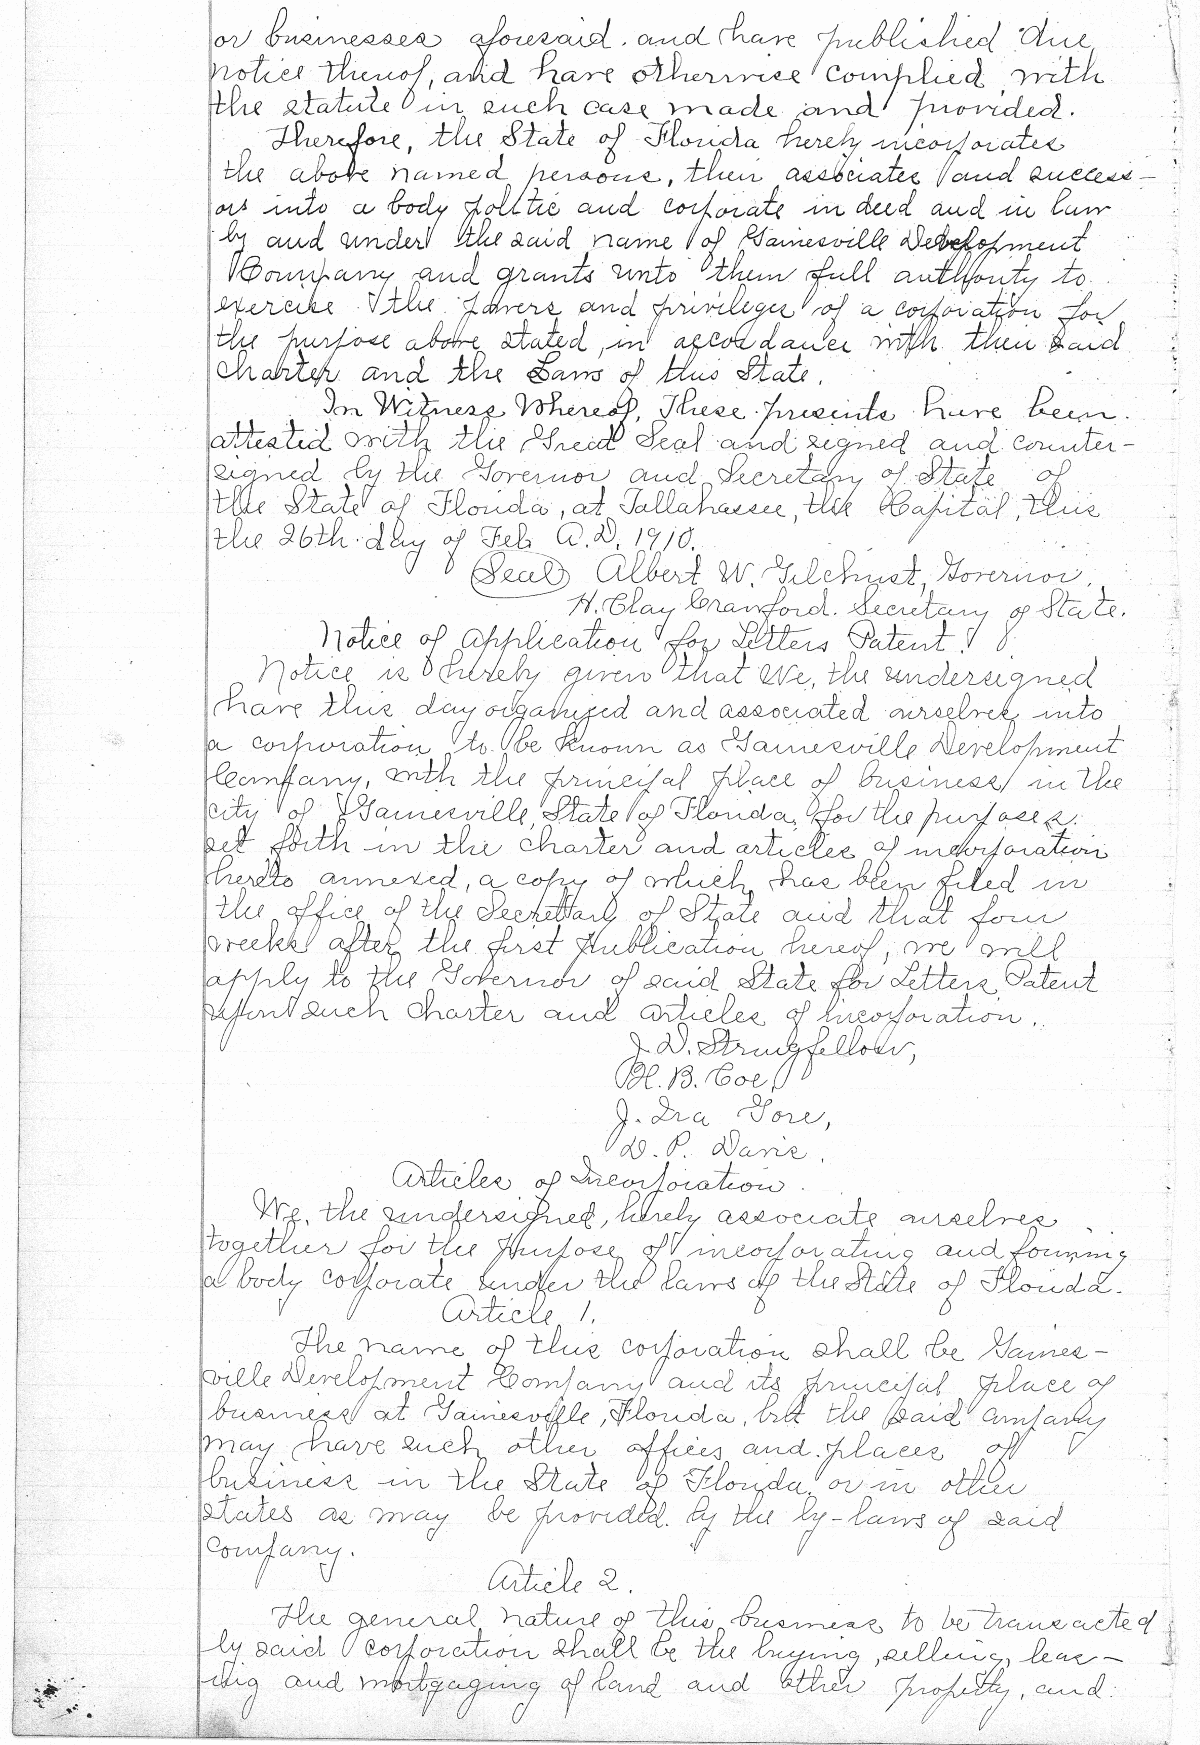 or businesses aforesaid. and have published due
notice thereof, and have otherwise complied with
the statute in such case made and provided.
Therefore, the State of Florida hereby incorporates
the above named persons, their associates and success-
ors into a body politic and corporate in deed and in law
by and under the said name of Gainesville Development
Company and grants unto them full authority to
exercise the powers and privileges of a corporation for
the purpose above stated, in accordance with their said
Charter and the Laws of this State.
In Witness Whereof, These presents have been
attested with the Great Seal and signed and counter-
signed by the Governor and Secretary of State of
the State of Florida, at Tallahassee, the Capital, this
the 26th day of Feb A.D. 1910.
(Seal) Albert W. Gilchrist, Governor.
H. Clay Crawford. Secretary of State.
Notice of Application for Letters Patent.
Notice is hereby given that We, the undersigned
have this day organized and associated ourselves into
a corporation to be known as Gainesville Development
Company, with the principal place of business in the
city of Gainesville, State of Florida, for the purposes
set forth in the charter and articles of incorporation
hereto annexed, a copy of which has been filed in
the office of the Secretary of State and that four
weeks after the first publication hereof, we will
apply to the Governor of said State for Letters Patent
upon such charter and articles of incorporation.
J. D. Stringfellow,
H. B. Coe,
J. Ira Gore,
D. P. Davis.
Articles of Incorporation.
We, the undersigned, hereby associate ourselves
together for the purpose of incorporating and forming
a body corporate under the laws of the State of Florida.
Article 1.
The name of this corporation shall be Gaines-
ville Development Company and its principal place of
business at Gainesville, Florida, but the said company
may have such other offices and places of
business in the State of Florida or in other
states as may be provided by the by-laws of said
company.
Article 2.
The general nature of this business to be transacted
by said corporation shall be the buying, selling, leas-
ing and mortgaging of land and other property, and